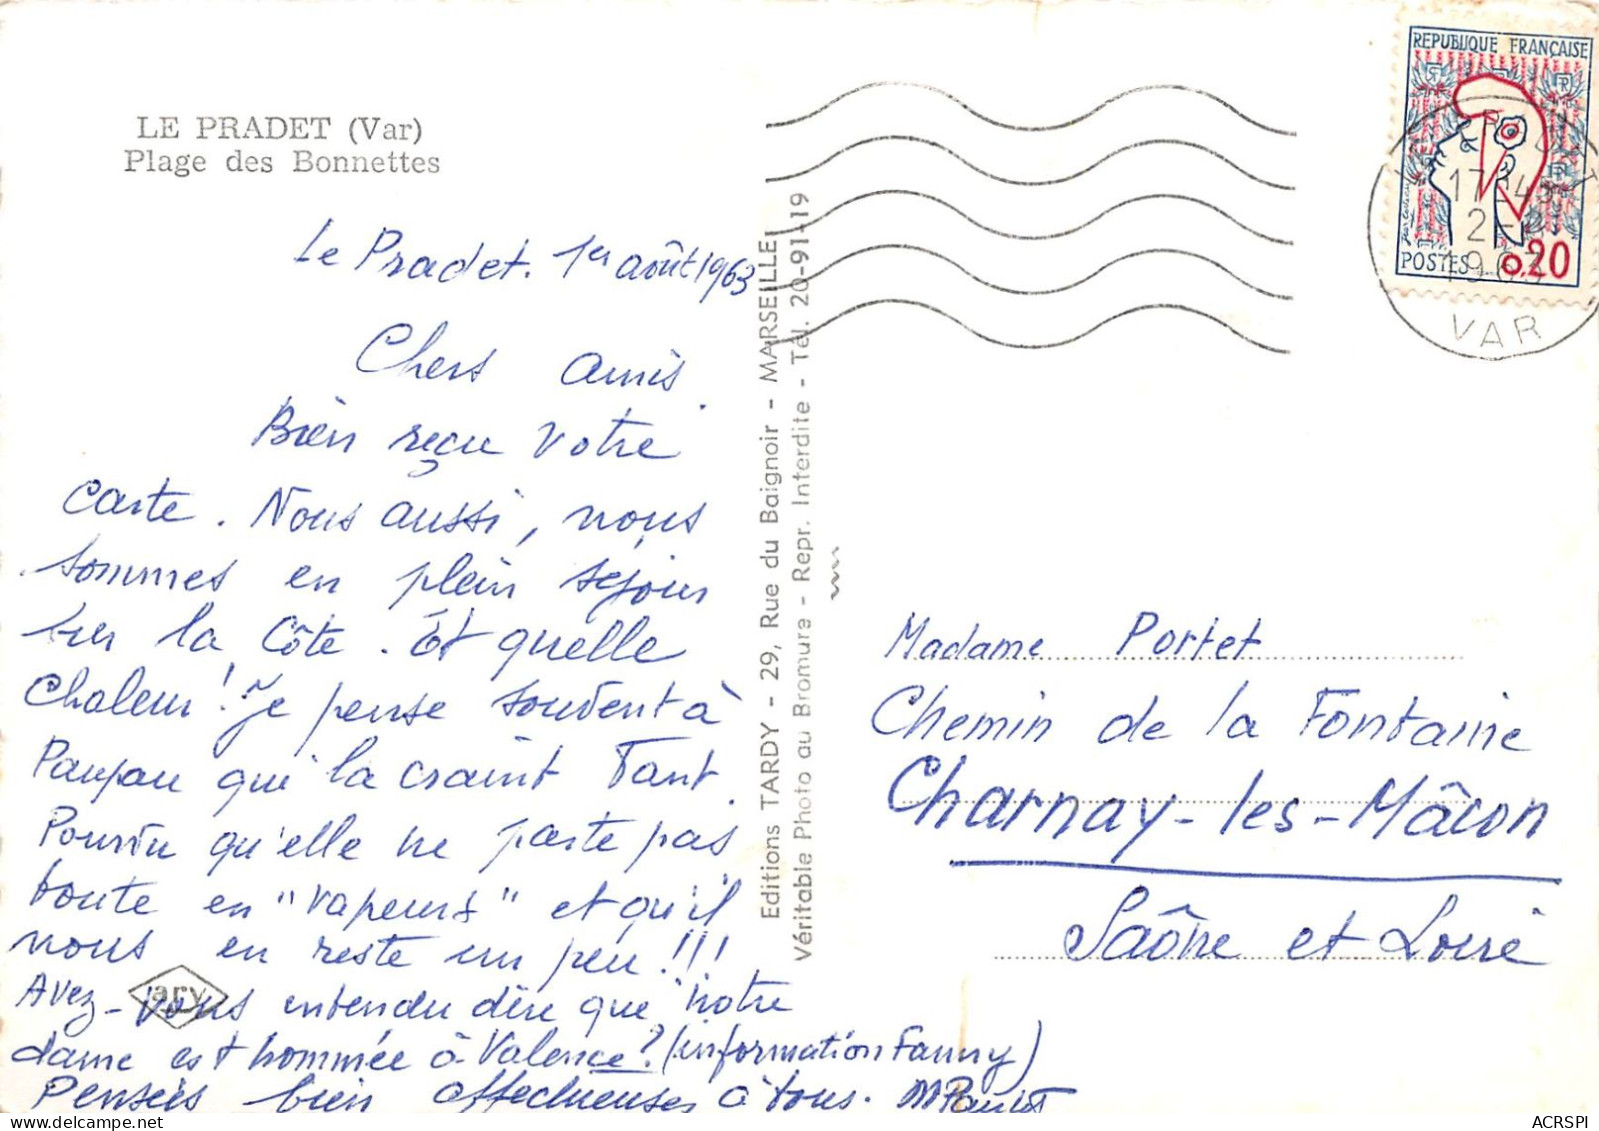 LE PRADET (Var)
Plage des Bonnettes
Le Pradet. 1er août 1963
Chers amis.
Bien reçu votre
carte. Nous aussi, nous
sommes en plein séjour
sur la Côte. Et quelle
chaleur! Je pense souvent à
qui la craint tant.
Pourvu qu'elle ne parte pas
toute en "vapeurs" et qu'il
nous en reste un peu!!!
Avez-vous entendu dire que notre
dame est nommée à Valence? (information Fanny)
Pensées bien affectueuses à tous.
ary
Editions TARDY - 29, Rue du Baignoir - MARSEILLE
Véritable Photo au Bromure - Repr. Interdite - Tél. 20-91-19
REPUBLIQUE FRANÇAISE
POSTES 0,20
17H45
2-8
1963
VAR
Madame Portet
Chemin de la Fontaine
Charnay-les-Mâcon
Saône et Loire
ACRSPI